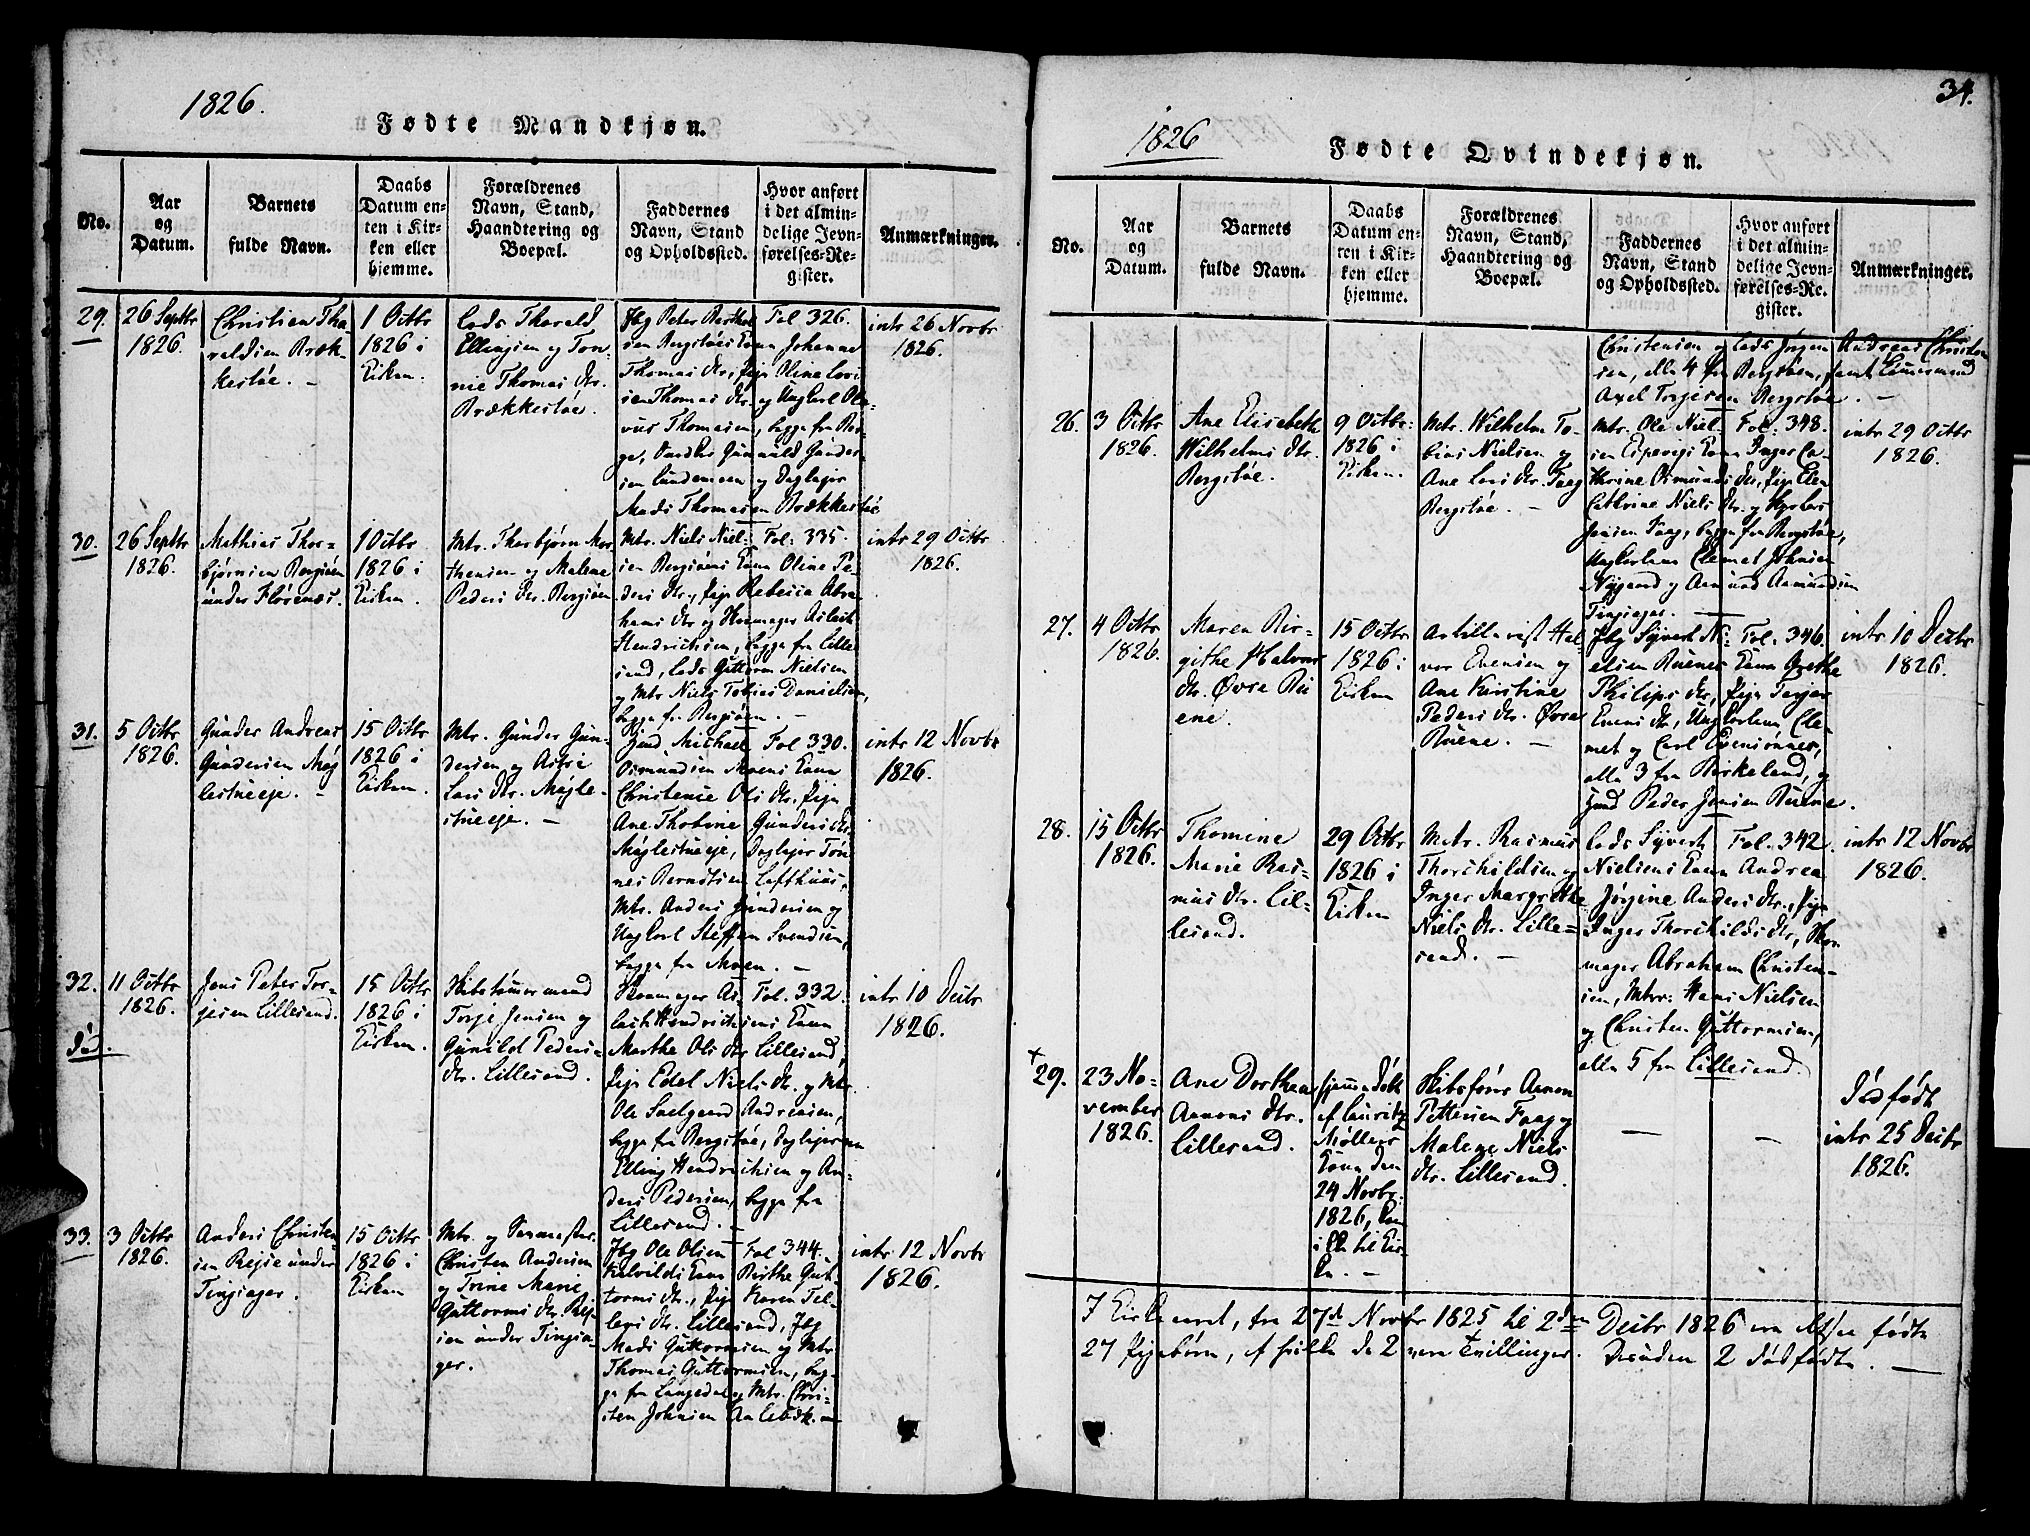 1826.
Fødte Mandkjøn.
No.
Aar
og
Datum.
Barnets
fulde Navn.
Daabs
Datum en-
ten i Kir-
ken eller
hjemme.
Forældrenes
Navn, Stand,
Haandtering og
Boepæl.
Faddernes
Navn, Stand
og Opholdssted.
Hvor anført
i det almin-
delige Jevn-
førelses-Re-
gister.
Anmærkninger.
29.
26 Septbr
1826.
Christian Tha-
raldsen Bræk-
kestøe. -
1 Octbr
1826 i
Kirken.
Lods Tharald
Ellingsen og Ton-
nie Thomas Dtr.
Brækkestøe.
Jbg Peter Berthel
sen Bergstøes Kone Johanne
Thomas Dtr, Pige Olene Lovi
se Thomas Dtr. og Ungkarl Ole-
vus Thomasen, begge fra Ber-
ge, Gunvald Gunder-
sen Lundemoen og Daglejer
Mads Thomasen Brækkestøe
Fol 326.
intr 26 Novbr
1826.
30.
26 Septbr
1826.
Mathias Thor-
bjørnsen Bergsøen
under Florenæs.
1 Octbr
1826 i
Kirken.
Mtr. Thorbjørn Mor-
thensen og Malene
Peders Dtr. Bergsøen
Mtr. Niels Niel-
sen Bergsøens Kone Oline Pe-
ders Dtr., Pige Rebecca Abra-
hams Dtr og Skomager Aslach
Hendrichsen, begge fra Lille-
sand, Lods Guttorm Nielsen
og Mtr Niels Tobias Danielsen,
begge fra Bergsøen. -
Fol: 335.
intr 29 Octbr
1826.
31.
5 Octbr
1826.
Gunder Andreas
Gundersen Møg-
lestueeje. -
15 Octbr
1826 i
Kirken.
Mtr. Gunder Gun-
dersen og Astri
Lars Dtr. Møgle-
stueeje. -
Gmd Michael
Osmundsen Moens Kone
Christense Ols Dtr. Pige
Ane Thobine Gunders Dtr.
Møglestueeje, Daglejer Tøn-
nes Berndtsen Lofthuus,
Mtr. Anders Gundersen og
Ungkarl Steffen Svendsen,
begge fra Moen. -
Fol 330.
intr 12 Novbr
1826.
32.
død.
11 Octbr
1826.
Jens Peter Tor-
jesen Lillesand.
15 Octbr
1826 i
Kirken.
Skibstømmermand
Torje Jensen og
Gunild Peders
Dtr. Lillesand.
Skomager As-
lach Hendrichsens Kone
Marthe Ols Dtr Lillesand,
Pige Edel Niels Dtr. og Mtr.
Ole Andreasen,
begge fra Bergstøe, Daglejerne
Elling Hendrichsen og An-
ders Pedersen, begge fra
Lillesand. -
Fol. 332.
intr 10 Decbr
1826.
33.
3 Octbr
1826.
Anders Christen-
sen Rejse under
Tingsager.
15 Octbr
1826 i
Kirken
Mtr. og
Christen Andersen
og Trine Marie
Guttorms Dtr. Rej-
sen under Tingsa-
ger.
Jbg Ole Olsen
Kalvilds Kone Birthe Gut-
torms Dtr., Pige Karen Tel-
lefs Dtr. Lillesand, Jbg
Mads Guttormsen og Mtr
Thomas Guttormsen, beg-
ge fra Langedal og Mtr. Chri-
sten Johnsen
Fol 344.
intr 12 Novbr
1826.
34.
1826
Fødte Qvindekjøn.
No.
Aar
og
Datum.
Barnets
fulde Navn.
Daabs
Datum en-
ten i Kir-
ken eller
hjemme.
Forældrenes
Navn, Stand,
Haandtering og
Boepæl.
Faddernes
Navn, Stand
og Opholdssted.
Hvor anført
i det almin-
delige Jevn-
førelses-Re-
gister.
Anmærkninger.
Christensen og Lods Jørgen Andreas Christen
sen, alle 4 fra Bergstøen, samt Tømmermand
Axel Torgersen Bergstøe. -
26.
3 Octbr
1826.
Ane Elisabeth
Wilhelms Dtr.
Bergstøe.
9 Octbr:
1826 i
Kirken.
Mtr. Wilhelm To-
bias Nielsen og
Ane Lars Dtr. Faag
Bergstøe. -
Mtr. Ole Niel-
sen Espevigs Kone Inger Ca-
thrine Osmunds Dtr, Pige Elen
Cathrine Niels Dtr. og
Jensen Faag, begge fra Bergstøe,
Ungkarlene Clemet Johnsen
Nygaard og Aamund Aamundsen
Tingsager. -
Fol: 348.
intr 29 Octbr
1826.
27.
4 Octbr
1826.
Maren Bir-
githe Halvors
Dtr. Øvre Ru-
ene.
15 Octbr
1826 i
Kirken
Artillerist Hal-
vor Evensen og
Ane Kirstine
Peders Dtr. Øvre
Ruene. -
Jbg Syvert Ni-
elsen Ruenes Kone Grethe
Philips Dtr, Pige Torjer
Evens Dtr, Ungkarlene Cle-
met og Carl Evensønner,
alle 3 fra Birkeland, og
Gmd Peder Jensen Ruene.
Fol. 346.
intr 10 Decbr
1826.
28.
15 Octbr
1826.
Thomine
Marie Ras-
mus Dtr. Lil-
lesand.
29 Octbr
1826 i
Kirken
Mtr. Rasmus
Thorchildsen og
Inger Margrethe
Niels Dtr. Lille-
sand. -
Lods Syvert
Nielsens Kone Andrea
Jørgine Anders Dtr., Pige
Inger Thorchilds Dtr, Sko-
mager Abraham Christen-
sen, Mtrr. Hans Nielsen
og Christen Guttormsen,
alle 5 fra Lillesand.
Fol. 342.
intr 12 Novbr
1826.
+
29.
23 No-
vember
1826.
Ane Dorthea
Aanons Dtr.
Lillesand.
hjemme døbt
af Lauritz
Møllers
Kone den
24 Novbr.
1826, kom
ikke til Kir-
ken. -
Skibsfører Aanon
Pettersen Faag og
Malene Niels
Dtr. Lillesand.
-
-
Dødfødt
intr 25 Decbr
1826.
I Kirkeaaret, fra 27de Novbr 1825 til 2den Decbr 1826 ere altsaa fødte
27 Pigebørn, af hvilke de 2 vare Tvillinger. Desuden 2 dødfødte. -